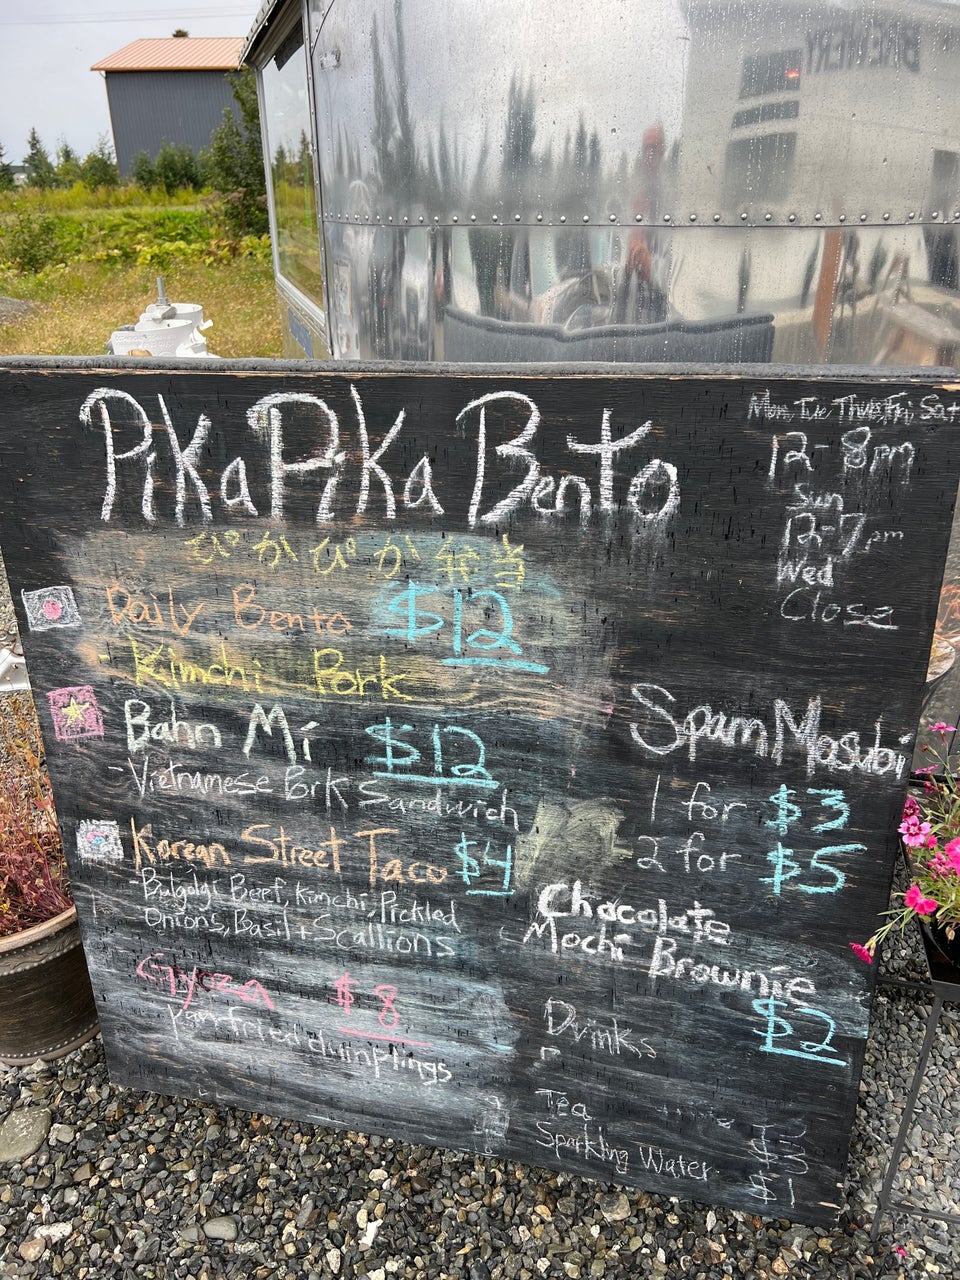 PikaPika Bento
ぴかぴか弁当
Daily Bento $12
- Kimchi Pork
Bahn Mí $12
- Vietnamese Pork Sandwich
Korean Street Taco $4
- Bulgolgi Beef, Kimchi, Pickled
Onions, Basil + Scallions
Gyoza $8
Pan-fried dumplings
Mon, Tue, Thus, Fri, Sat
12-8pm
Sun
12-7pm
Wed
Close
Spam Masubi
1 for $3
2 for $5
Chocolate
Mochi Brownie
$2
Drinks
Tea
$3
Sparkling Water
$1
BREWERY